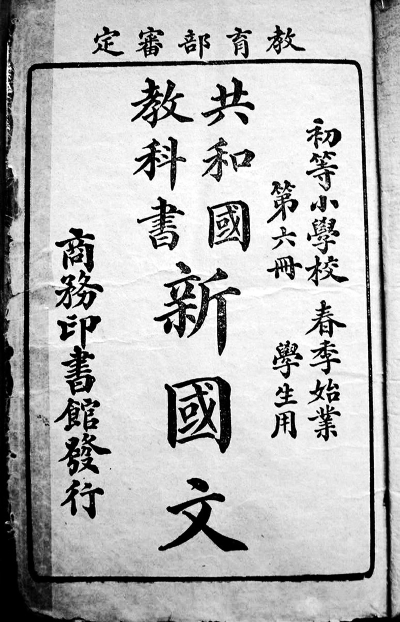 教育部審定
初等小學校 春季始業
第六冊 學生用
共和國
教科書
新國文
商務印書館發行